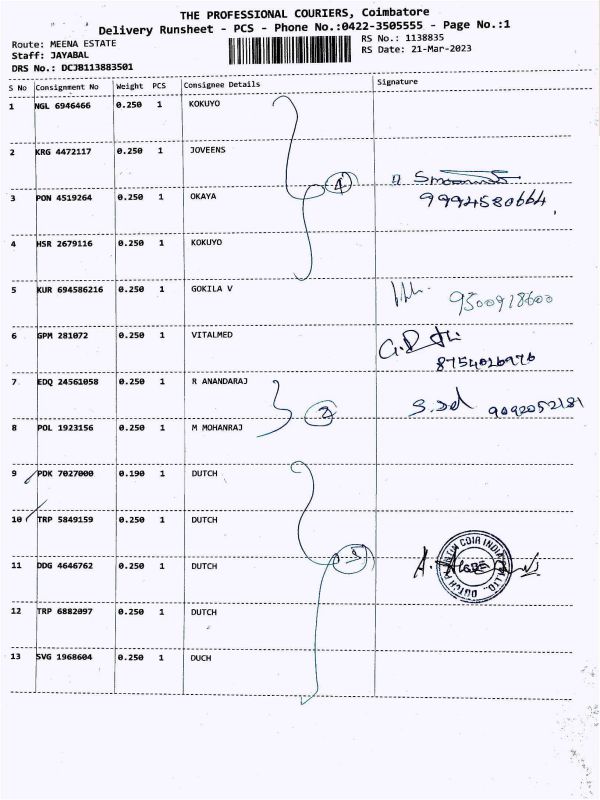 THE PROFESSIONAL COURIERS, Coimbatore
Delivery Runsheet - PCS - Phone No.:0422-3505555 - Page No.:1
Route: MEENA ESTATE
RS No.: 1138835
Staff: JAYABAL
RS Date: 21-Mar-2023
DRS No.: DCJB113883501
S No Consignment No Weight PCS Consignee Details Signature
1 NGL 6946466 0.250 1 KOKUYO
2 KRG 4472117 0.250 1 JOVEENS
4
3 PON 4519264 0.250 1 OKAYA
9994580664
4 HSR 2679116 0.250 1 KOKUYO
5 KUR 694586216 0.250 1 GOKILA V
9500918600
6 GPM 281072 0.250 1 VITALMED
8754026976
7 EDQ 24561058 0.250 1 R ANANDARAJ
2 9092052181
8 POL 1923156 0.250 1 M MOHANRAJ
9 PDK 7027000 0.190 1 DUTCH
10 TRP 5849159 0.250 1 DUTCH
11 DDG 4646762 0.250 1 DUTCH
12 TRP 6882097 0.250 1 DUTCH
13 SVG 1968604 0.250 1 DUCH